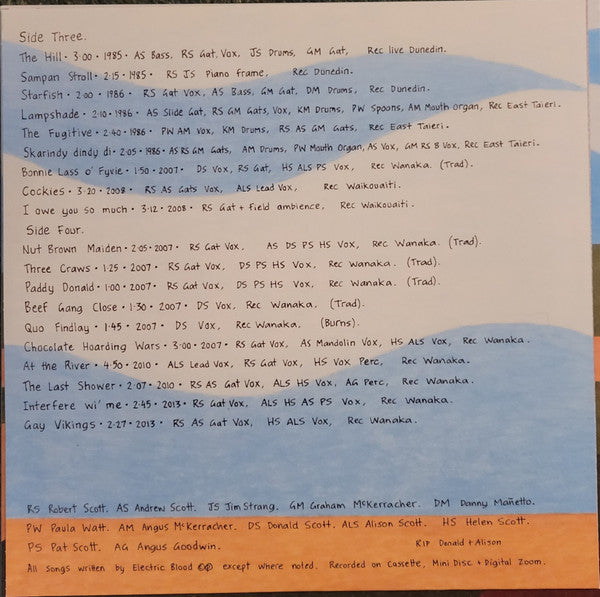 Side Three.
The Hill • 3·00 • 1985 • AS Bass, RS Gat, Vox, JS Drums, GM Gat, Rec live Dunedin.
Sampan Stroll • 2·15 • 1985 • RS JS Piano frame, Rec Dunedin.
Starfish • 2:00 • 1986 • RS Gat Vox, AS Bass, GM Gat, DM Drums, Rec Dunedin.
Lampshade • 2·10 • 1986 • AS Slide Gat, RS GM Gats, Vox, KM Drums, PW Spoons, AM Mouth organ, Rec East Taieri.
The Fugitive • 2:40 • 1986 • PW AM Vox, KM Drums, RS AS GM Gats, Rec East Taieri.
Skarindy dindy di • 2·05 • 1986 • AS RS GM Gats, AM Drums, PW Mouth Organ, AS Vox, GM RS B Vox, Rec East Taieri.
Bonnie Lass o' Fyvie • 1:50 • 2007 • DS Vox, RS Gat, HS ALS PS Vox, Rec Wanaka. (Trad).
Cockies • 3·20 • 2008 • RS AS Gats Vox, ALS Lead Vox, Rec Waikouaiti.
I owe you so much • 3·12 • 2008 • RS Gat + field ambience, Rec Waikouaiti.
Side Four.
Nut Brown Maiden • 2·05 • 2007 • RS Gat Vox, AS DS PS HS Vox, Rec Wanaka. (Trad).
Three Craws • 1·25 • 2007 • RS Gat Vox, DS PS HS Vox, Rec Wanaka. (Trad).
Paddy Donald • 1·00 • 2007 • RS Gat Vox, DS PS HS Vox, Rec Wanaka. (Trad).
Beef Gang Close • 1·30 • 2007 • DS Vox, Rec Wanaka, (Trad).
Quo Findlay • 1·45 • 2007 • DS Vox, Rec Wanaka, (Burns).
Chocolate Hoarding Wars • 3·00 • 2007 • RS Gat Vox, AS Mandolin Vox, HS ALS Vox, Rec Wanaka.
At the River • 4·50 • 2010 • ALS Lead Vox, RS Gat Vox, HS Vox Perc, Rec Wanaka.
The Last Shower • 2·07 • 2010 • RS AS Gat Vox, ALS HS Vox, AG Perc, Rec Wanaka.
Interfere wi' me • 2:45 • 2013 • RS Gat Vox, ALS HS AS PS Vox, Rec Wanaka.
Gay Vikings • 2·27 • 2013 • RS AS Gat Vox, HS ALS Vox, Rec Wanaka.
RS Robert Scott. AS Andrew Scott. JS Jim Strang. GM Graham McKerracher. DM Danny Mañetto.
PW Paula Watt. AM Angus McKerracher. DS Donald Scott. ALS Alison Scott. HS Helen Scott.
PS Pat Scott. AG Angus Goodwin. RIP Donald + Alison
All songs written by Electric Blood ©℗ except where noted. Recorded on Cassette, Mini Disc + Digital Zoom.